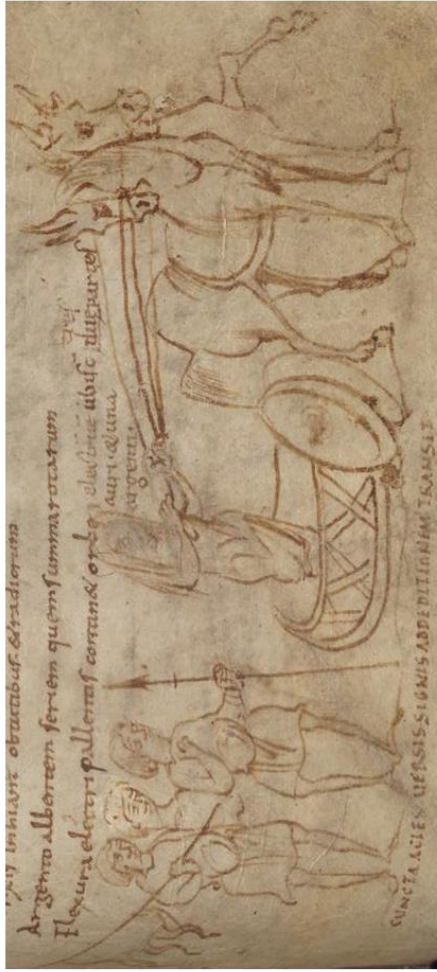 inhiant obtutibus & radiorum
Argento albentem seriem quem summa rotarum
Flexura electri pallentis contin& orbe
ubi st duę partes
auri & una
argenti.
CUNCTA ACIES UERSIS SIGNIS ADDEDITIONEM TRANSIT